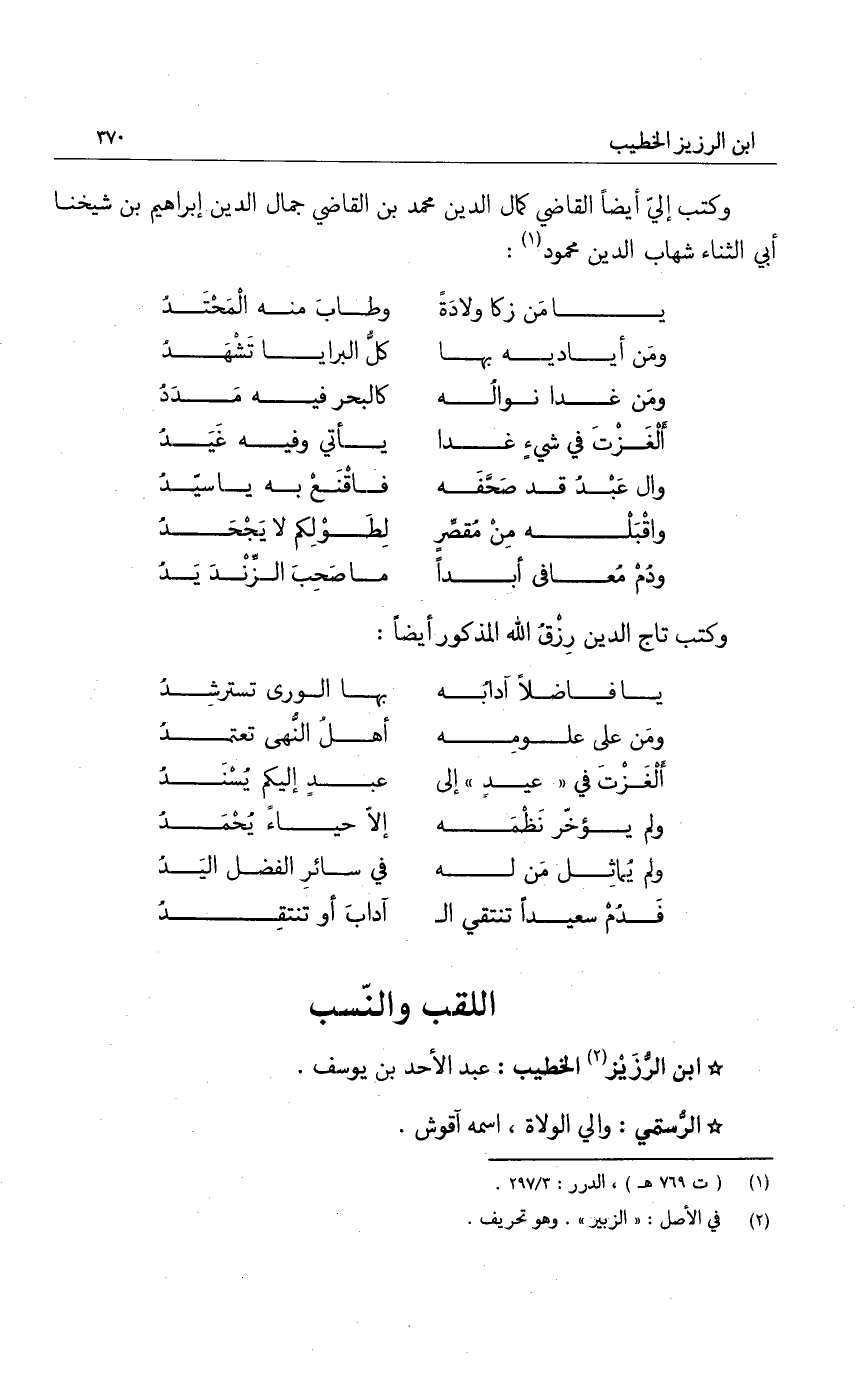 ابن الرزيز الخطيب ٣٧٠
وكتب إليّ أيضاً القاضي كمال الدين محمد بن القاضي جمال الدين إبراهيم بن شيخنا
أبي الثناء شهاب الدين محمود(١) :
يا مَن زكا ولادَةً وطابَ منه الْمَحْتَدُ
ومَن أياديه بها كلُّ البرايا تَشْهَدُ
ومَن غدا نوالُه كالبحر فيه مَدَدُ
أَلْغَزْتَ في شيءٍ غدا يأتي وفيه غَيَدُ
وال عَبْدُ قد صَحَّفَه فاقْنَعْ به ياسيّدُ
واقْبَلْه مِنْ مُقصِّرٍ لِطَوْلِكم لا يَجْحَدُ
ودُمْ مُعافى أبداً ما صَحِبَ الزِّنْدَ يَدُ
وكتب تاج الدين رِزْقُ الله المذكور أيضاً :
يا فاضلاً آدابُه بها الورى تسترشِدُ
ومَن على علومِه أهلُ النُّهى تعتمدُ
أَلْغَزْتَ في « عيدٍ » إلى عبدٍ إليكم يُسْنَدُ
ولم يؤخّر نَظْمَه إلاّ حياءً يُحْمَدُ
ولم يُماثِل مَن له في سائرِ الفضل اليَدُ
فَدُمْ سعيداً تنتقي الـ آدابَ أو تنتقِدُ
اللقب والنّسب
☆ ابن الرُّزَيْز(٢) الخطيب : عبد الأحد بن يوسف .
☆ الرُّستمي : والي الولاة ، اسمه آقوش .
(١) ( ت ٧٦٩ هـ ) ، الدرر : ٢٩٧/٣ .
(٢) في الأصل : « الزبير » . وهو تحريف .